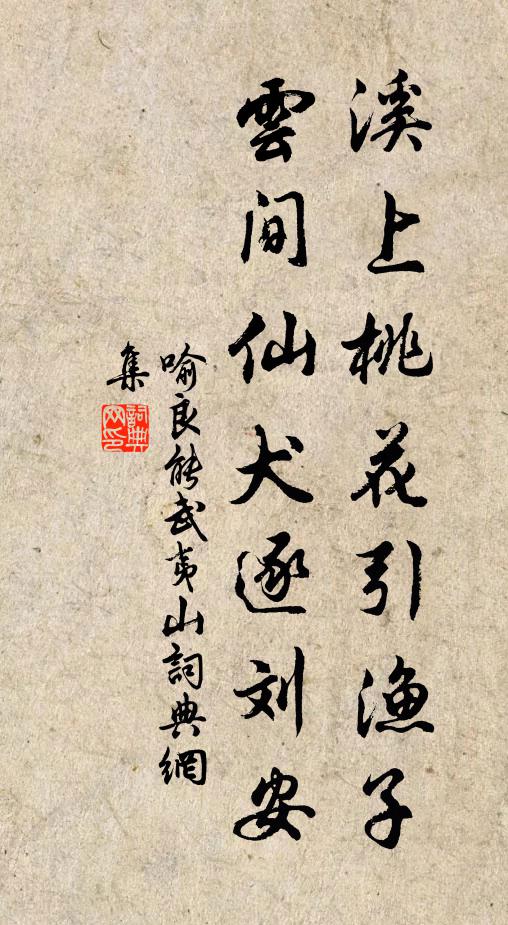 溪上桃花引渔子
雲间仙犬逐刘安
喻良能武夷山詞典網
集
詞典
网印